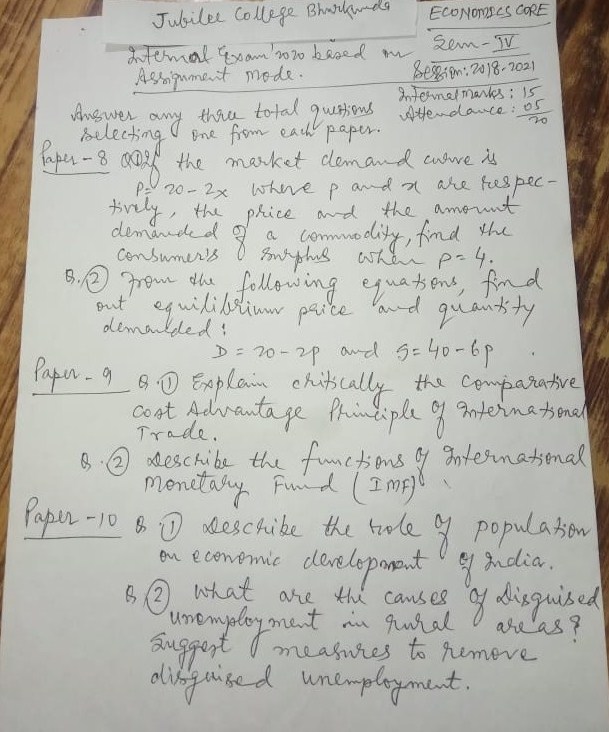 Jubilee College Bhurkunda
ECONOMICS CORE
Internal Exam' 2020 based on
Sem - IV
Assignment Mode.
Session: 2018-2021
Internal marks : 15
Answer any three total questions
Attendance : 05
20
selecting one from each paper.
Paper - 8 Q① If the market demand curve is
P = 20 - 2x where p and x are respec-
tively, the price and the amount
demanded of a commodity, find the
consumer's surplus when p = 4.
Q. ② From the following equations, find
out equilibrium price and quantity
demanded :
D = 20 - 2p and S = 40 - 6p .
Paper - 9 Q.① Explain critically the Comparative
Cost Advantage Principle of International
Trade.
Q. ② Describe the functions of International
Monetary Fund (IMF) .
Paper - 10 Q ① Describe the role of population
on economic development of India.
Q ② What are the causes of Disguised
unemployment in rural areas?
Suggest measures to remove
disguised unemployment.